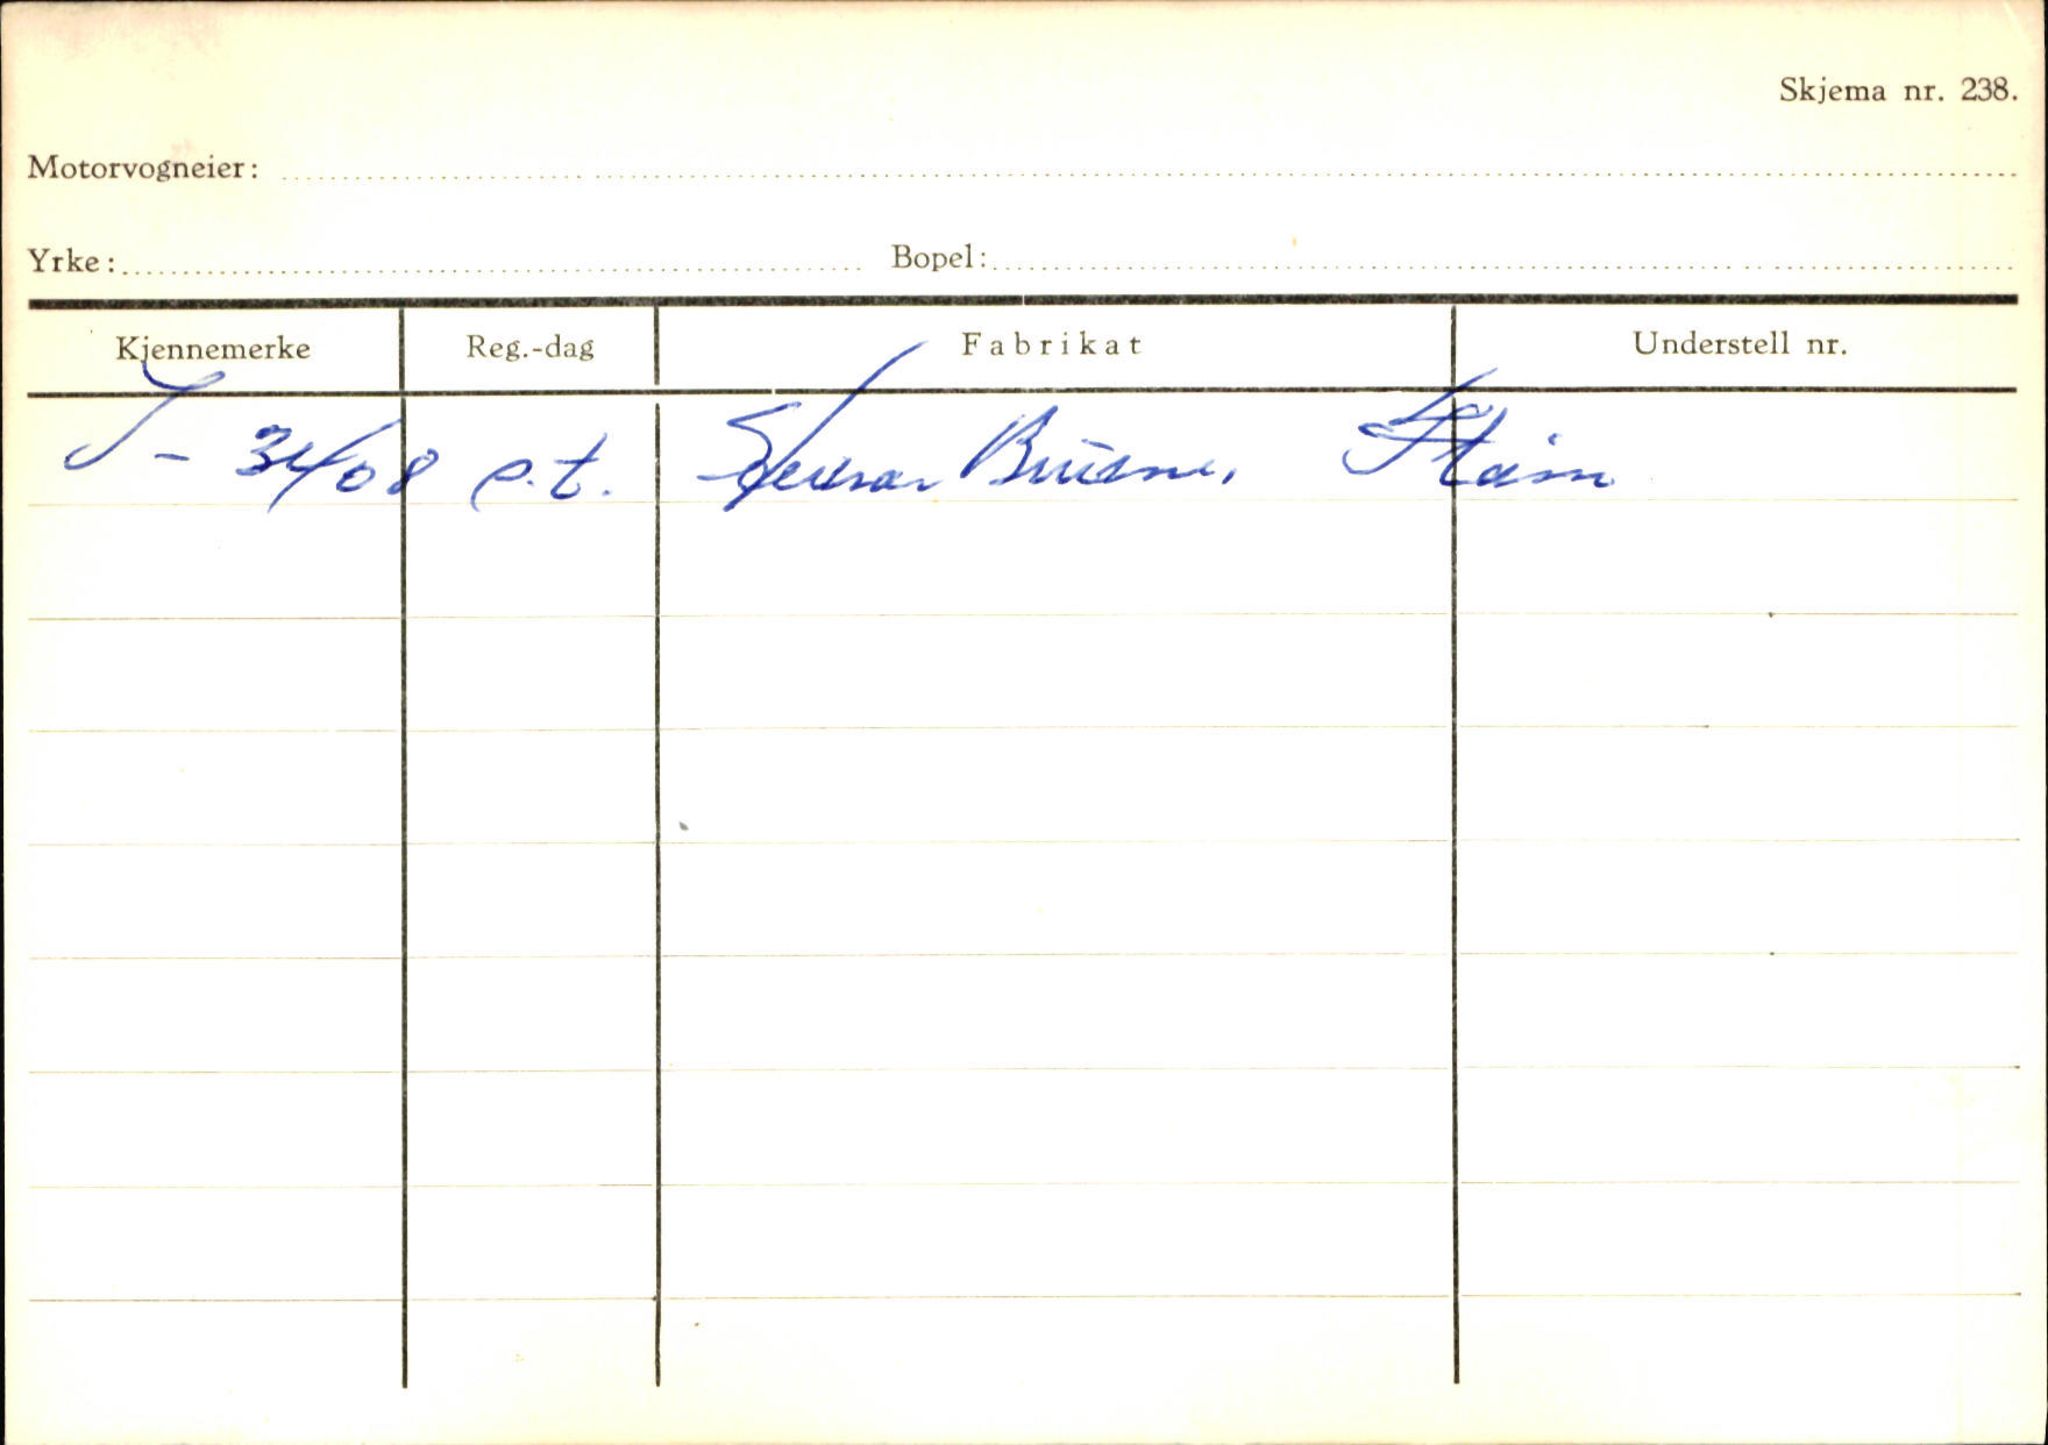 Skjema nr. 238.
Motorvogneier:
Yrke: Bopel:
Kjennemerke Reg.-dag Fabrikat Understell nr.
S - 3408 e.t.